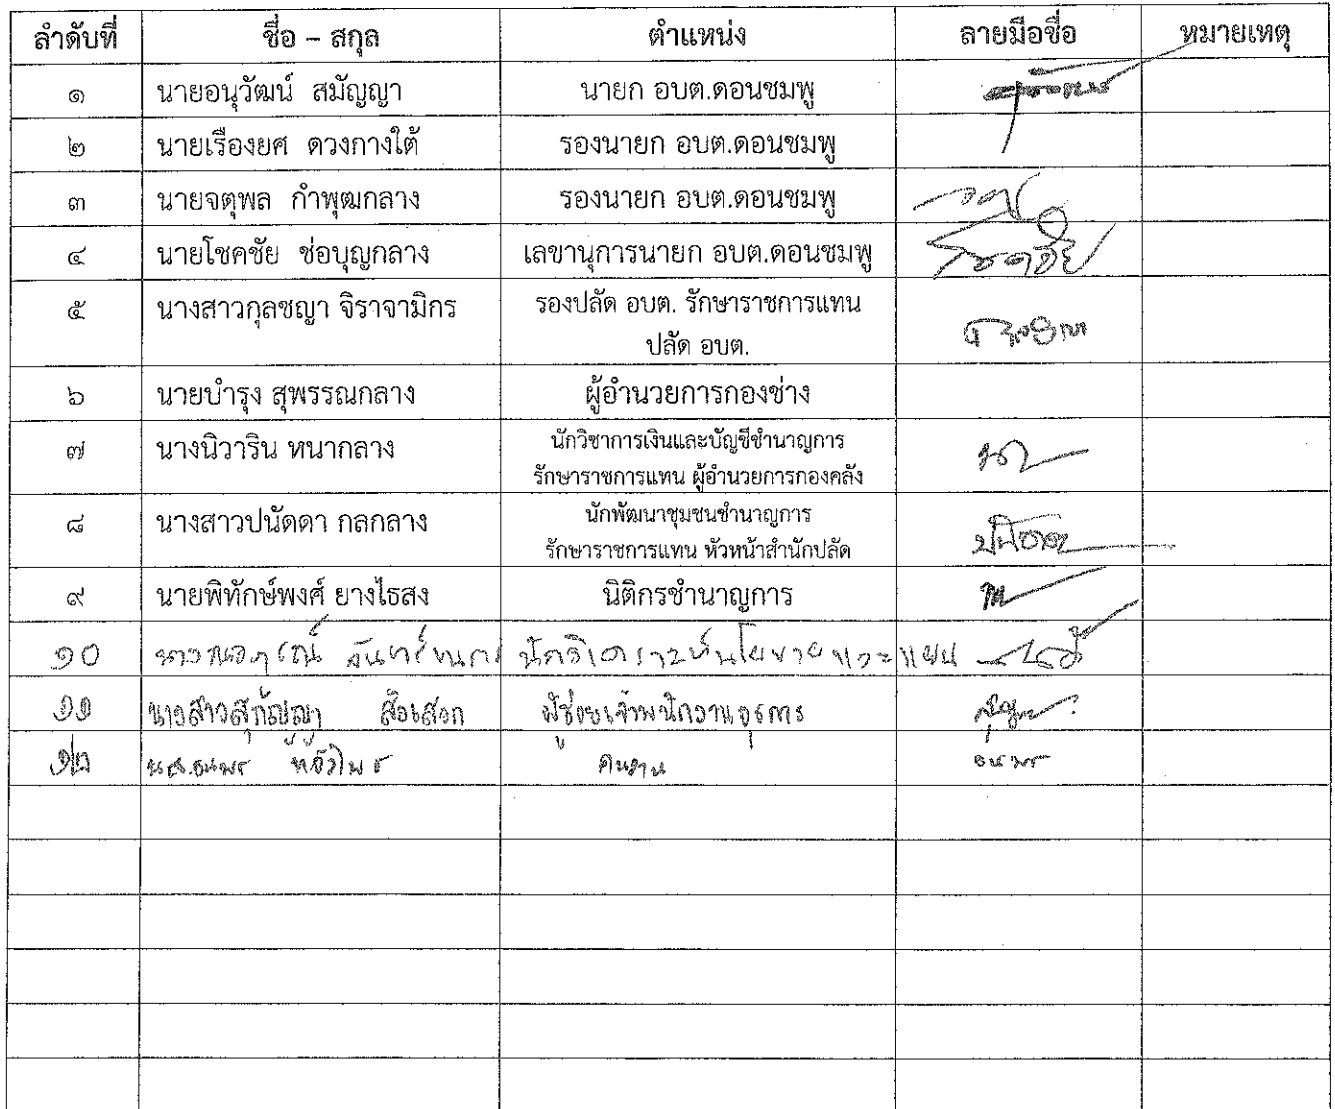 ลำดับที่ ชื่อ – สกุล ตำแหน่ง ลายมือชื่อ หมายเหตุ
๑ นายอนุวัฒน์ สมัญญา นายก อบต.ดอนชมพู
๒ นายเรืองยศ ดวงกางใต้ รองนายก อบต.ดอนชมพู
๓ นายจตุพล กำพุฒกลาง รองนายก อบต.ดอนชมพู
๔ นายโชคชัย ช่อบุญกลาง เลขานุการนายก อบต.ดอนชมพู โชคชัย
๕ นางสาวกุลชญา จิราจามิกร รองปลัด อบต. รักษาราชการแทน
ปลัด อบต.
๖ นายบำรุง สุพรรณกลาง ผู้อำนวยการกองช่าง
๗ นางนิวาริน หนากลาง นักวิชาการเงินและบัญชีชำนาญการ
รักษาราชการแทน ผู้อำนวยการกองคลัง
๘ นางสาวปนัดดา กลกลาง นักพัฒนาชุมชนชำนาญการ
รักษาราชการแทน หัวหน้าสำนักปลัด ปนัดดา
๙ นายพิทักษ์พงศ์ ยางไธสง นิติกรชำนาญการ
๑๐ นักวิเคราะห์นโยบายและแผน
๑๑ นางสาวสุกัญญา ผู้ช่วยเจ้าพนักงานธุรการ
๑๒ น.ส.ธนพร คนงาน ธนพร